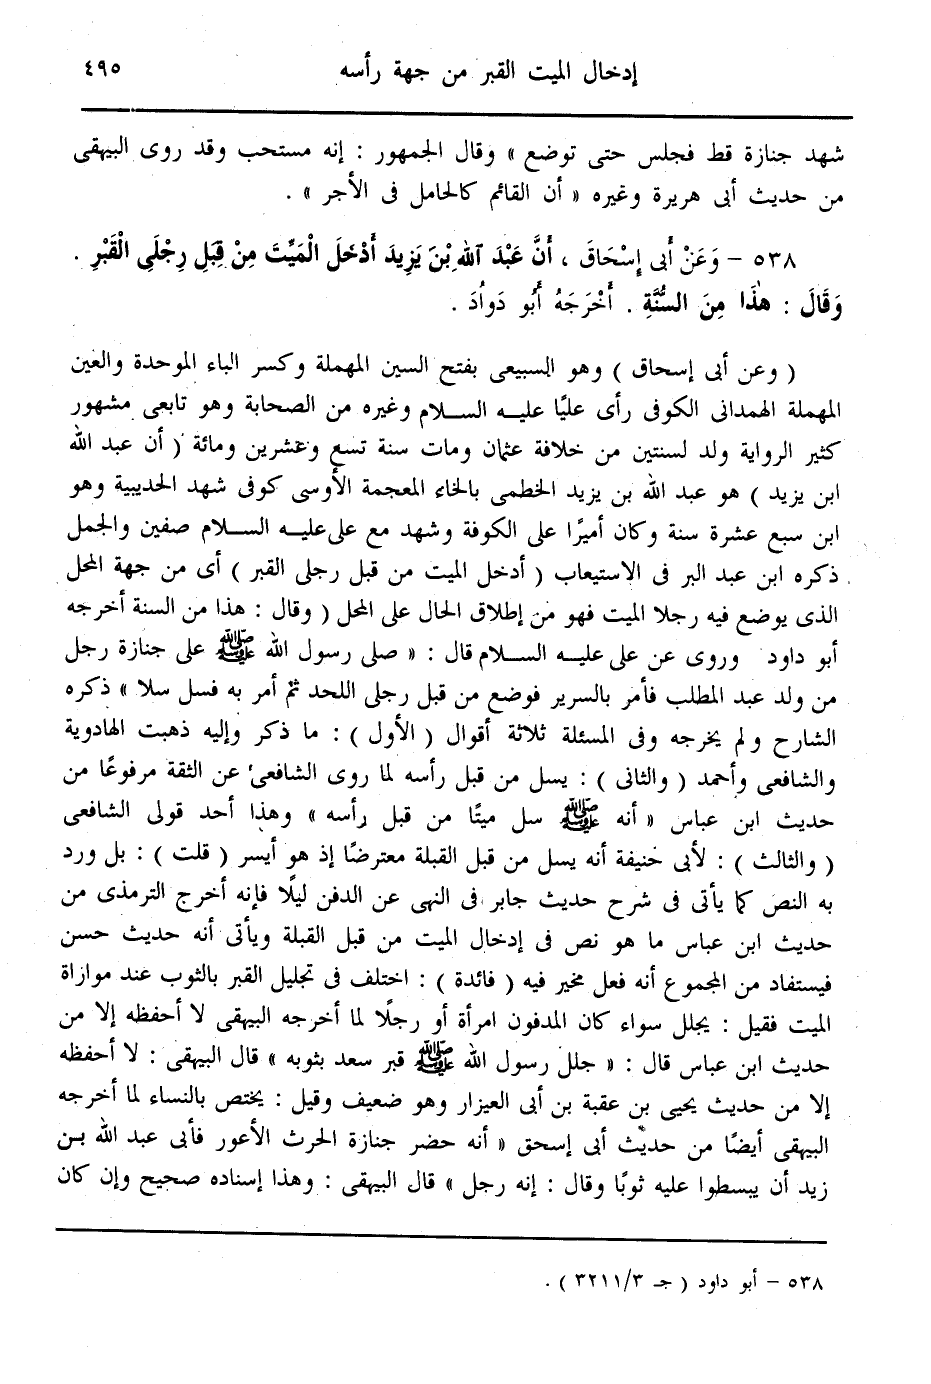 إدخال الميت القبر من جهة رأسه ٤٩٥
شهد جنازة قط فجلس حتى توضع » وقال الجمهور : إنه مستحب وقد روى البيهقى
من حديث أبى هريرة وغيره « أن القائم كالحامل فى الأجر » .
٥٣٨ – وَعَنْ أَبى إِسْحَاقَ ، أَنَّ عَبْدَ اللهِ بْنَ يَزِيدَ أَدْخَلَ الْمَيِّتَ مِنْ قِبَلِ رِجْلَىِ الْقَبْرِ .
وَقَالَ : هٰذَا مِنَ السُّنَّةِ . أَخْرَجَهُ أَبُو دَوادَ .
( وعن أبى إسحاق ) وهو السبيعى بفتح السين المهملة وكسر الباء الموحدة والعين
المهملة الهمدانى الكوفى رأى عليًا عليه السلام وغيره من الصحابة وهو تابعى مشهور
كثير الرواية ولد لسنتين من خلافة عثمان ومات سنة تسع وعشرين ومائة ( أن عبد الله
ابن يزيد ) هو عبد الله بن يزيد الخطمى بالخاء المعجمة الأوسى كوفى شهد الحديبية وهو
ابن سبع عشرة سنة وكان أميرًا على الكوفة وشهد مع على عليه السلام صفين والجمل
ذكره ابن عبد البر فى الاستيعاب ( أدخل الميت من قبل رجلى القبر ) أى من جهة المحل
الذى يوضع فيه رجلا الميت فهو من إطلاق الحال على المحل ( وقال : هذا من السنة أخرجه
أبو داود وروى عن على عليه السلام قال : « صلى رسول الله ﷺ على جنازة رجل
من ولد عبد المطلب فأمر بالسرير فوضع من قبل رجلى اللحد ثم أمر به فسل سلا » ذكره
الشارح ولم يخرجه وفى المسئلة ثلاثة أقوال ( الأول ) : ما ذكر وإليه ذهبت الهادوية
والشافعى وأحمد ( والثانى ) : يسل من قبل رأسه لما روى الشافعى عن الثقة مرفوعًا من
حديث ابن عباس « أنه ﷺ سل ميتًا من قبل رأسه » وهذا أحد قولى الشافعى
( والثالث ) : لأبى حنيفة أنه يسل من قبل القبلة معترضًا إذ هو أيسر ( قلت ) : بل ورد
به النص كما يأتى فى شرح حديث جابر فى النهى عن الدفن ليلًا فإنه أخرج الترمذى من
حديث ابن عباس ما هو نص فى إدخال الميت من قبل القبلة ويأتى أنه حديث حسن
فيستفاد من المجموع أنه فعل مخير فيه ( فائدة ) : اختلف فى تجليل القبر بالثوب عند موازاة
الميت فقيل : يجلل سواء كان المدفون امرأة أو رجلًا لما أخرجه البيهقى لا أحفظه إلا من
حديث ابن عباس قال : « جلل رسول الله ﷺ قبر سعد بثوبه » قال البيهقى : لا أحفظه
إلا من حديث يحيى بن عقبة بن أبى العيزار وهو ضعيف وقيل : يختص بالنساء لما أخرجه
البيهقى أيضًا من حديث أبى إسحق « أنه حضر جنازة الحرث الأعور فأبى عبد الله بن
زيد أن يبسطوا عليه ثوبًا وقال : إنه رجل » قال البيهقى : وهذا إسناده صحيح وإن كان
٥٣٨ – أبو داود ( جـ ٣٢١١/٣ ) .